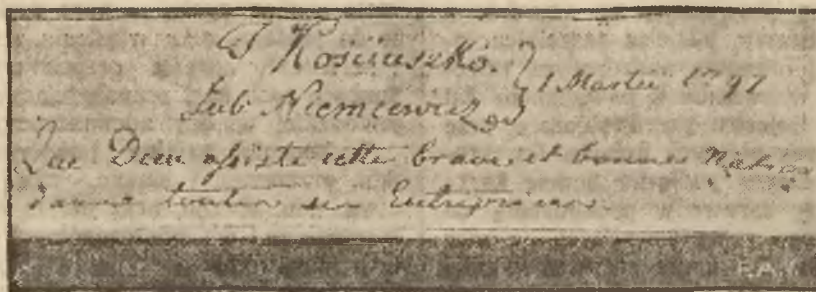 T Kościuszko.
Jul: Niemcewicz } 1 Martii 1797
Que Dieu assiste cette brave et bonne Nation
dans toutes ses Entreprises.